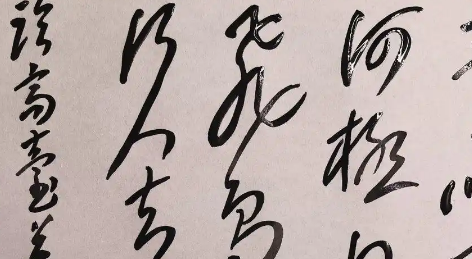 何極
飛鳥
行人去
臨高臺